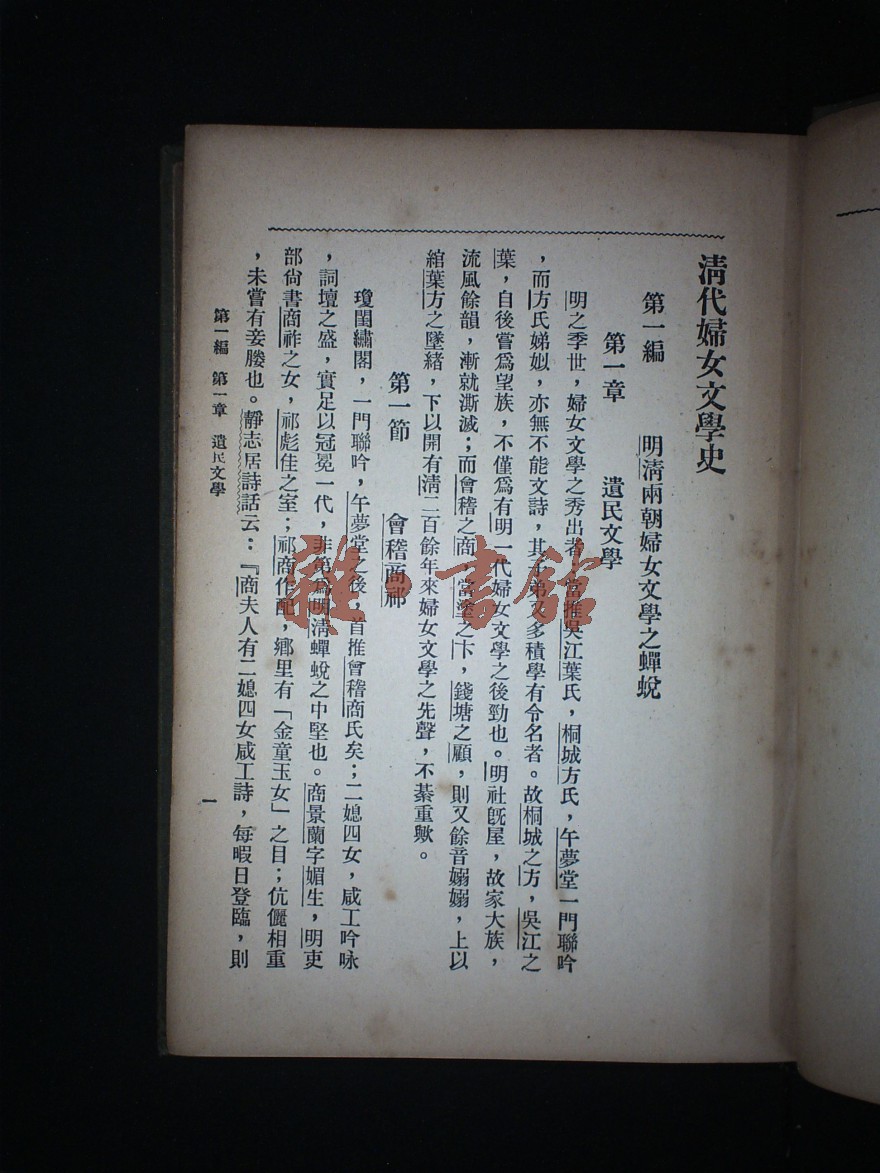 清代婦女文學史
第一編　明清兩朝婦女文學之蟬蛻
第一章　遺民文學
明之季世，婦女文學之秀出者，當推吳江葉氏，桐城方氏，午夢堂一門聯吟
，而方氏娣姒，亦無不能文詩，其子弟又多積學有令名者。故桐城之方，吳江之
葉，自後嘗爲望族，不僅爲有明一代婦女文學之後勁也。明社旣屋，故家大族，
流風餘韻，漸就澌滅；而會稽之商，當塗之卞，錢塘之顧，則又餘音嫋嫋，上以
綰葉方之墜緒，下以開有清二百餘年來婦女文學之先聲，不綦重歟。
第一節　會稽商祁
瓊閨繡閣，一門聯吟，午夢堂之後，首推會稽商氏矣；二媳四女，咸工吟咏
，詞壇之盛，實足以冠冕一代，非第爲明清蟬蛻之中堅也。商景蘭字媚生，明吏
部尙書商祚之女，祁彪佳之室；祁商作配，鄉里有「金童玉女」之目；伉儷相重
，未嘗有妾媵也。靜志居詩話云：『商夫人有二媳四女咸工詩，每暇日登臨，則
第一編　第一章　遺民文學
一
雜·書館